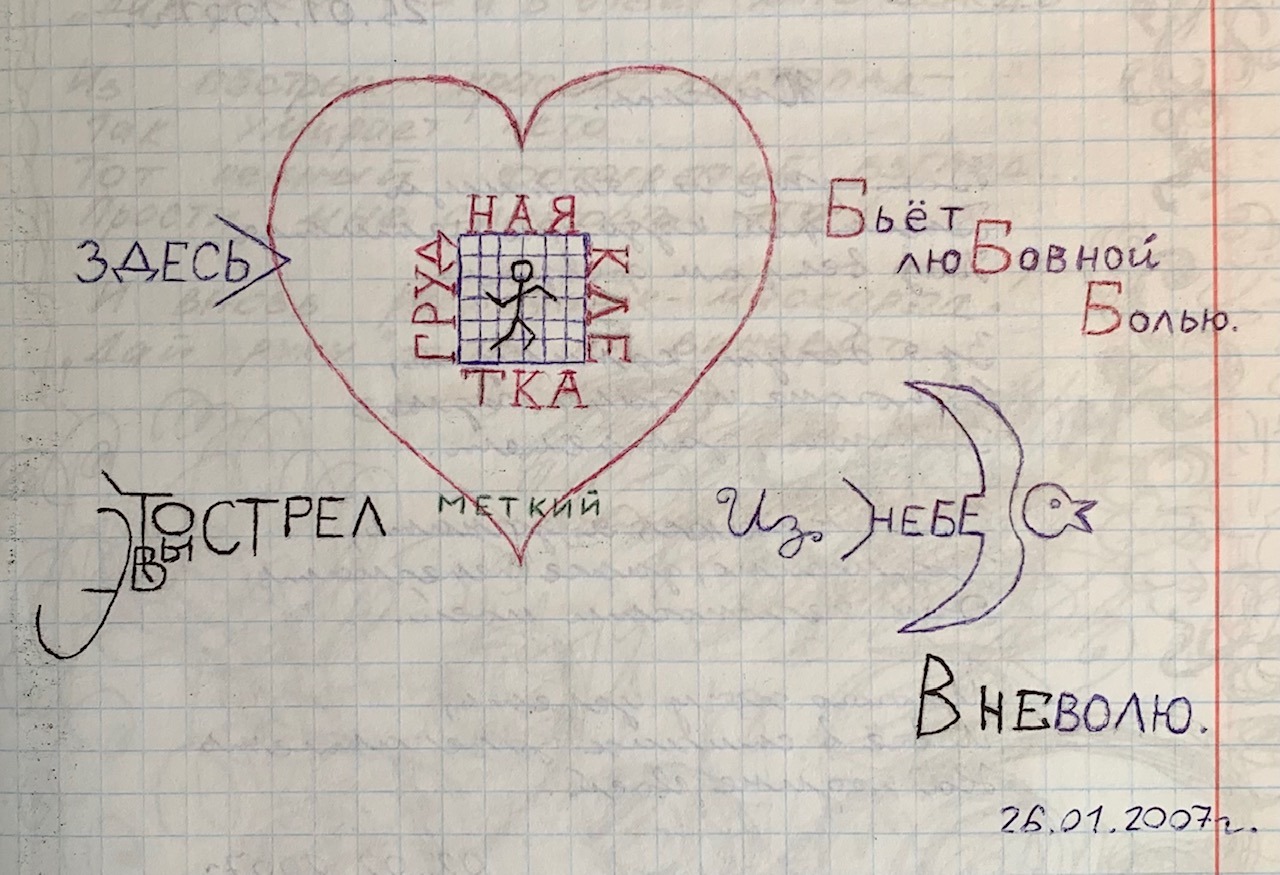 ЗДЕСЬ
ГРУД
НАЯ
КЛЕ
ТКА
Бьёт
люБовной
Болью.
ТО
Вы
СТРЕЛ
МЕТКИЙ
Из
НЕБЕ
В НЕВОЛЮ.
26.01.2007г.